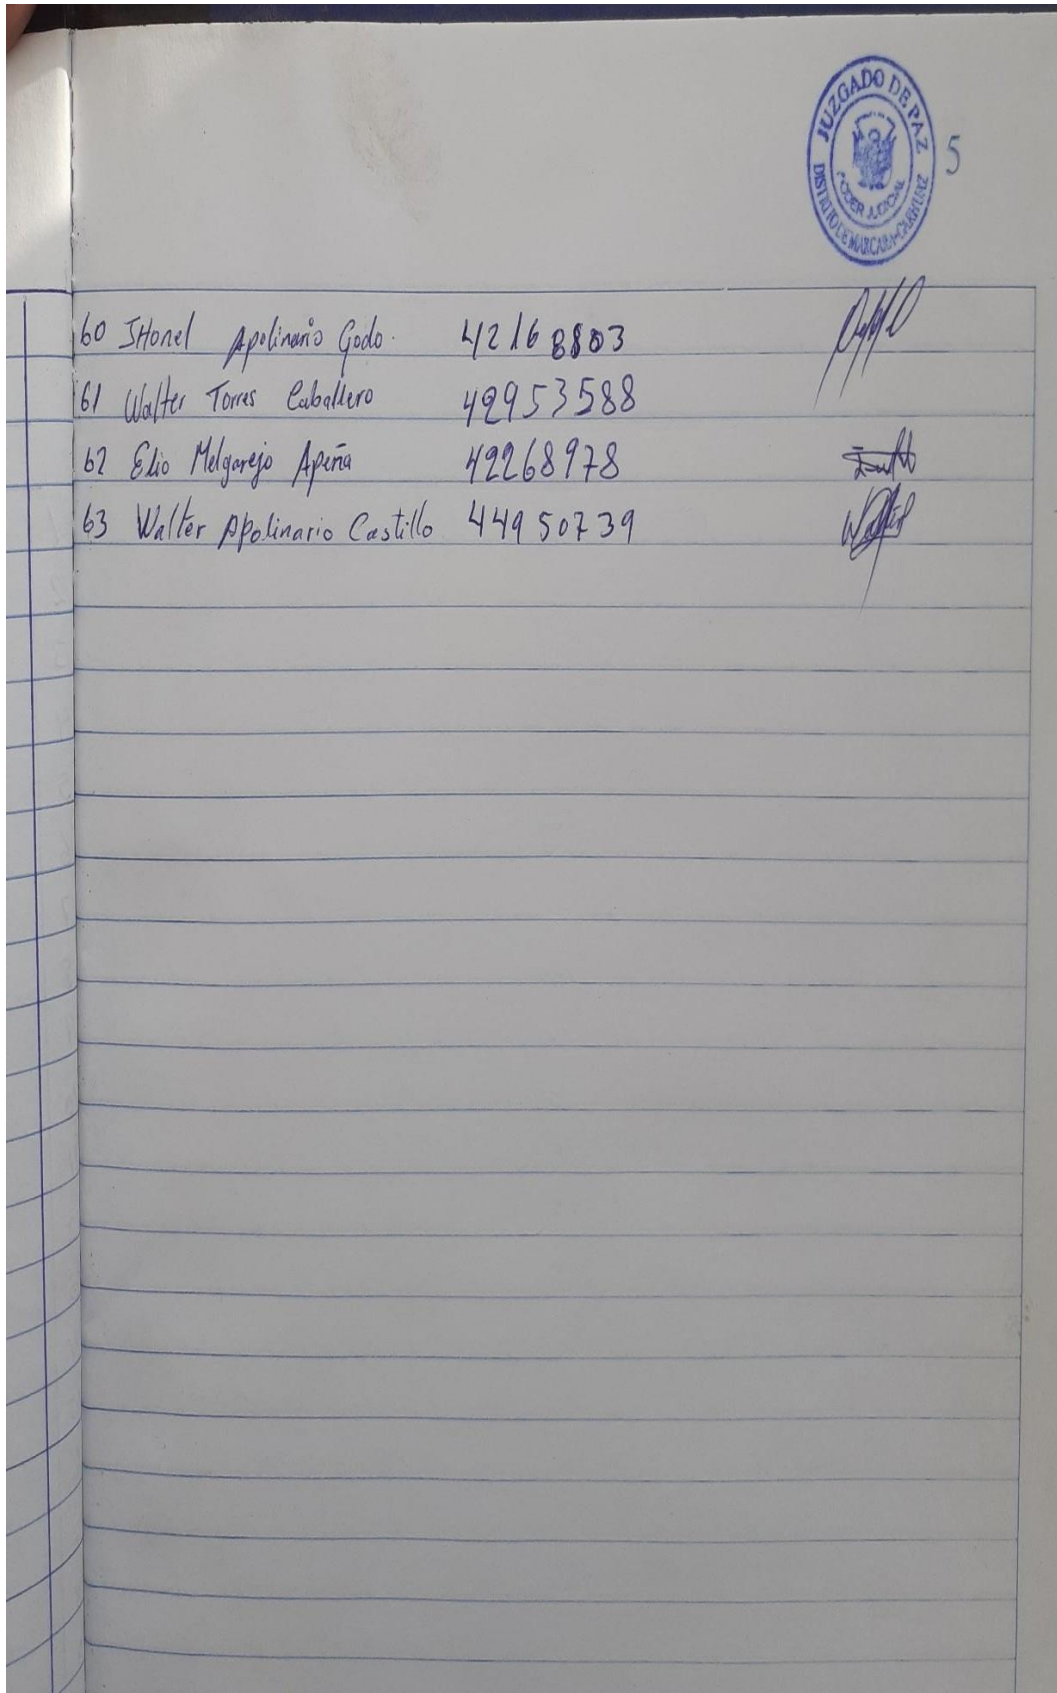 JUZGADO DE PAZ
PODER JUDICIAL
DISTRITO DE MARCARA-CARHUAZ
5
60 JHonel Apolinario Godo. 42168803
61 Walter Torres Caballero 42953588
62 Elio Melgarejo Apeña 42268978
63 Walter Apolinario Castillo 44950739